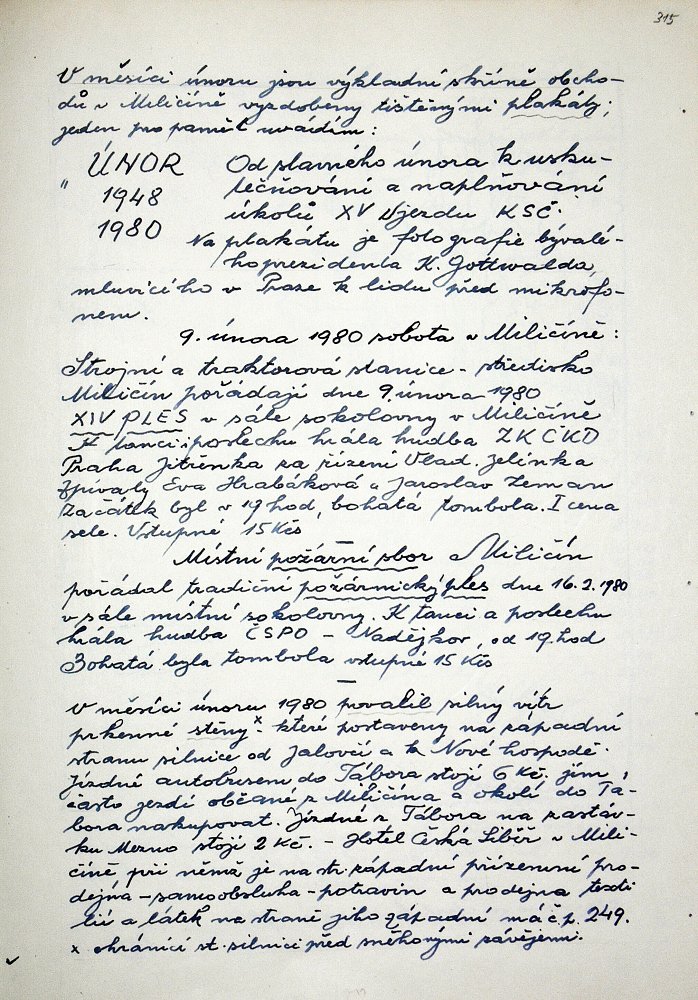 315
V měsíci únoru jsou výkladní skříně obcho-
dů v Miličíně vyzdobeny tištěnými plakáty;
jeden pro paměť uvádím:
" ÚNOR Od slavného února k usku-
1948 tečňování a naplňování
1980 úkolů XV sjezdu KSČ.
Na plakátu je fotografie bývalé-
ho prezidenta K. Gottwalda,
mluvícího v Praze k lidu před mikrofo-
nem.
9. února 1980 sobota v Miličíně:
Strojní a traktorová stanice - středisko
Miličín pořádají dne 9. února 1980
XIV PLES v sále sokolovny v Miličíně
K tanci i poslechu hrála hudba ZK ČKD
Praha Jitřenka za řízení Vlad. Jelínka
Zpívaly Eva Hrabáková a Jaroslav Zeman
Začátek byl v 19 hod, bohatá tombola. I cena
sele. Vstupné 15 Kčs
Místní požární sbor Miličín
pořádal tradiční požárnický ples dne 16.2.1980
v sále místní sokolovny. K tanci a poslechu
hrála hudba ČSPO - Nadějkov, od 19 hod
Bohatá byla tombola vstupné 15 Kčs
V měsíci únoru 1980 povalil silný vítr
prkenné stěny x které postaveny na západní
stranu silnice od Jalovčí a k Nové hospodě.
Jízdné autobusem do Tábora stojí 6 Kč. jím
často jezdí občané z Miličína a okolí do Tá-
bora nakupovat. Jízdné z Tábora na zastáv-
ku Mezno stojí 2 Kč. - Hotel Česká Sibiř v Mili-
číně při němž je na str. západní přízemní pro-
dejna - samoobsluha - potravin a prodejna texti
lií a látek na straně jiho západní má č.p. 249.
x chránící st. silnici před sněhovými závějemi.